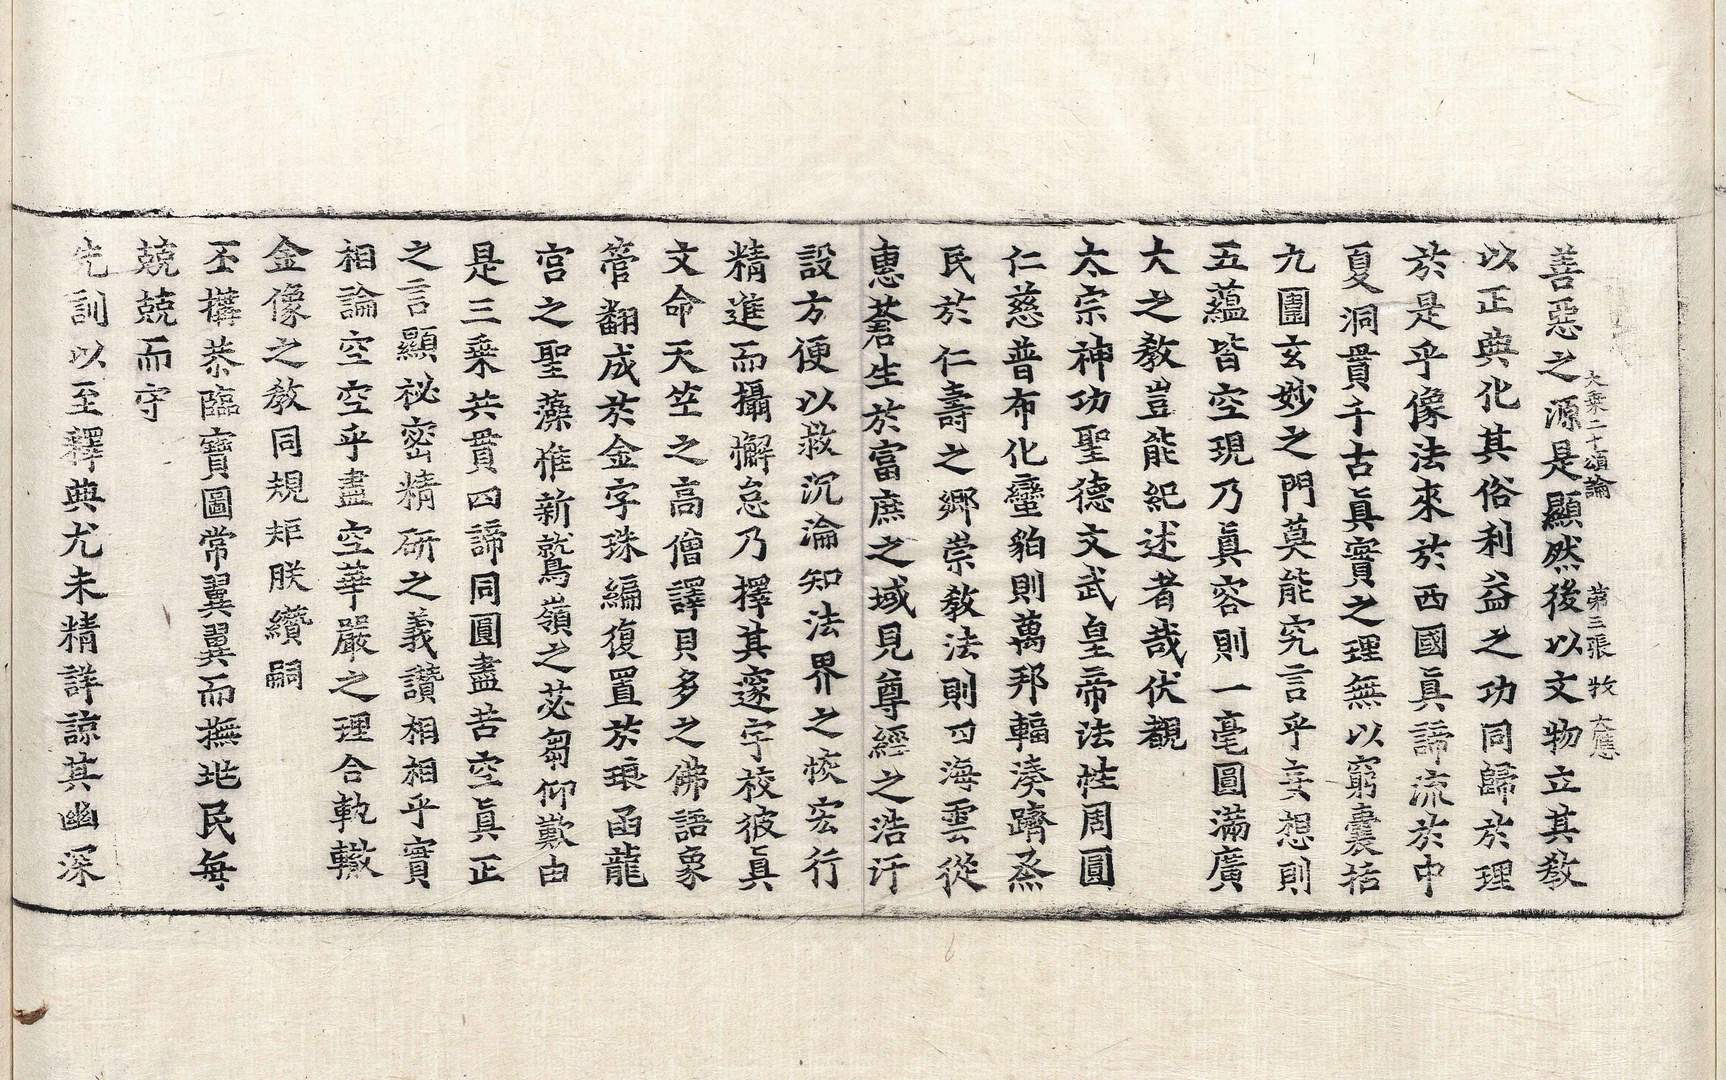 大乘二十頌論 第三張 牧 大應
善惡之源是顯然後以文物立其敎
以正典化其俗利益之功同歸於理
於是乎像法來於西國眞諦流於中
夏洞貫千古眞實之理無以窮囊括
九圍玄妙之門莫能究言乎妄想則
五蘊皆空現乃眞容則一毫圓滿廣
大之敎豈能紀述者哉伏覩
太宗神功聖德文武皇帝法性周圓
仁慈普布化蠻貊則萬邦輻湊躋烝
民於仁壽之鄉崇敎法則四海雲從
惠蒼生於富庶之域見尊經之浩汗
設方便以救沉淪知法界之恢宏行
精進而攝懈怠乃擇其邃宇校彼眞
文命天竺之高僧譯貝多之佛語象
管翻成於金字珠編復置於琅函龍
宮之聖藻惟新鷲嶺之苾芻仰歎由
是三乘共貫四諦同圓盡苦空眞正
之言顯祕密精硏之義讚相相乎實
相論空空乎盡空華嚴之理合軌轍
金像之敎同規矩朕纘嗣
丕搆恭臨寶圖常翼翼而撫兆民每
兢兢而守
先訓以至釋典尤未精詳諒其幽深